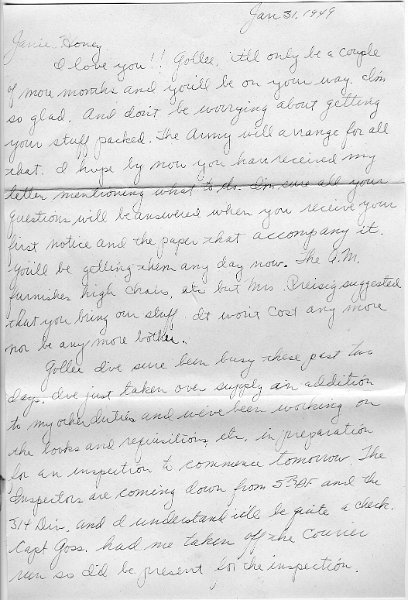 Jan 31, 1949
Janie Honey
I love you!! Gollee, it'll only be a couple
of more months and you'll be on your way. I'm
so glad. And don't be worrying about getting
your stuff packed. The Army will arrange for all
that. I hope by now you have received my
letter mentioning what to do. I'm sure all your
questions will be answered when you receive your
first notice and the paper that accompany it.
You'll be getting them any day now. The Q.M.
furnishes high chairs, etc but Mrs. Preisig suggested
that you bring our stuff. It won't cost any more
nor be any more bother.
Gollee I've sure been busy these past two
days. I've just taken over supply in addition
to my other duties and we've been working on
the books and requisitions etc. in preparation
for an inspection to commence tomorrow. The
Inspectors are coming down from 5th AF and the
314 Div. and I understand it'll be quite a check.
Capt Goss. had me taken off the courier
run so I'd be present for the inspection.